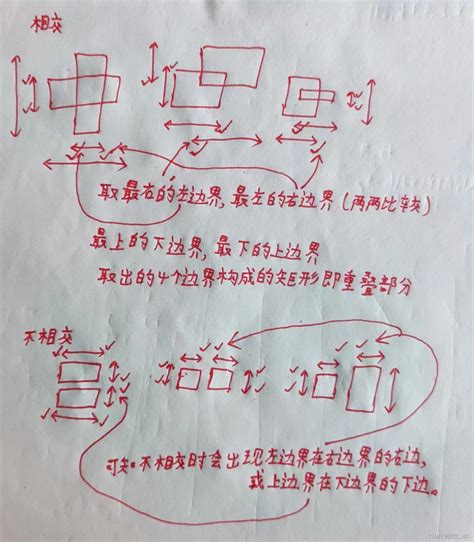 相交
取最右的左边界,最左的右边界(两两比较)
最上的下边界,最下的上边界
取出的4个边界构成的矩形即重叠部分
不相交
可知:不相交时会出现左边界在右边界的右边,
或上边界在下边界的下边。